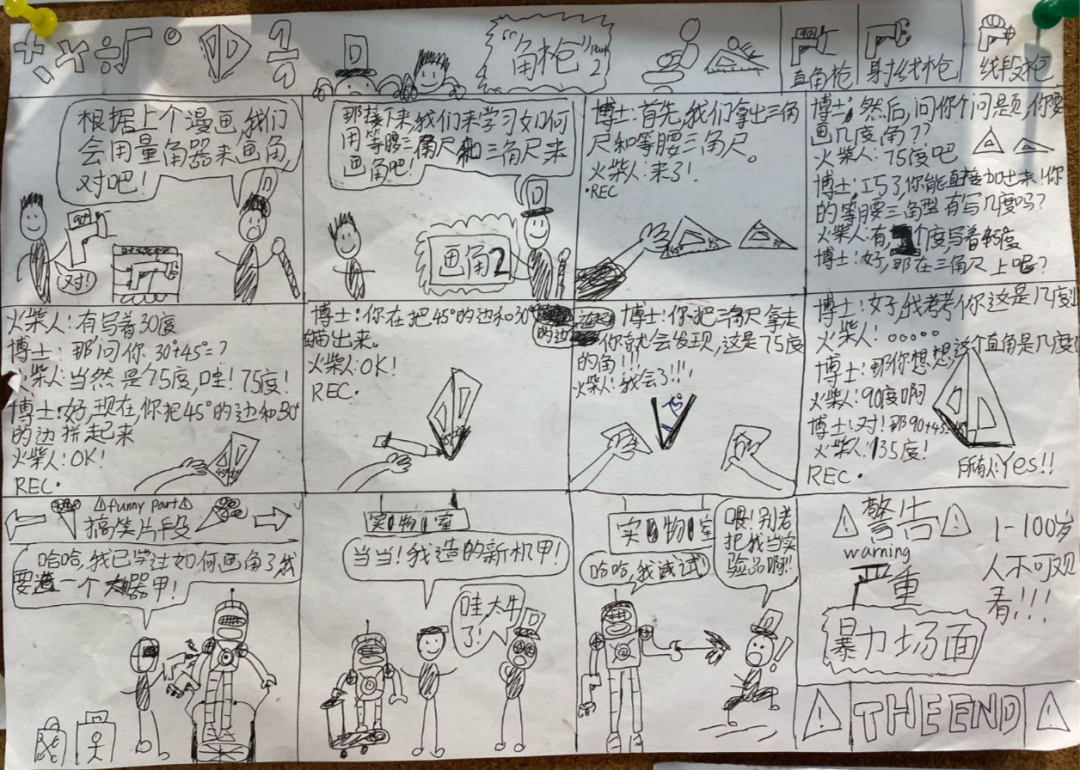 + - × ÷ √ °
D
1/1
D
"角枪"Part
2
直角枪
射线枪
线段枪
根据上个漫画,我们
会用量角器来画角
对吧!
90°
对!
D
那接下来,我们来学习如何
用等腰三角尺和三角尺来
画角吧!
D
画角2
博士:首先,我们拿出三角
尺和等腰三角尺。
火柴人:来了!
·REC
博士:然后,问你个问题,你要
画几度角??
火柴人:75度吧
博士:巧了你能直接加出来!你
的等腰三角型有写几度吗?
火柴人:有个度写着45度
博士:好,那在三角尺上呢?
火柴人:有写着30度
博士:那问你30°+45°=?
火柴人:当然是75度,哇!75度!
博士:好,现在你把45°的边和30°
的边拼起来
火柴人:OK!
REC·
博士:你在把45°的边和30°
的边
描出来。
火柴人:OK!
REC·
博士:你把三角尺拿走
你就会发现,这是75度
的角!!!
火柴人:我会了!!!
75°
博士:好,我考考你这是几度
火柴人:。。。。
博士:那你想想这个直角是几度
火柴人:90度啊
博士:对!那90+45=
火柴人:135度!
REC·
所有人:Yes!!
⚠funny part⚠
搞笑片段
哈哈,我已学过如何画角了我
要造一个机器甲!
实物室
当当!我造的新机甲!
哇,太牛
了!
D
实物室
哈哈,我试试!
喂!别老
把我当实
验品啊!!
D
⚠警告⚠
warning
重
暴力场面
1-100岁
人不可观
看!!!
⚠THE END⚠